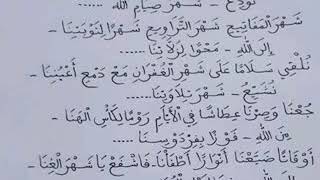 نودع - شهر صيام الله ......
شَهْرَ المَفَاتِيحِ شَهْرَ التَّرَاوِيحِ شَهْرًا لِتَوْبَتِنَا -
إِلَى اللهِ - مَحْوًا لِزَلَّاتِنَا ......
نُلْقِي سَلَامًا عَلَى شَهْرِ الْغُفْرَانِ مَعْ دَمْعِ أَعْيُنِنَا -
نُشَيِّعُ - شَهْرَ تِلَاوَتِنَا ......
جُعْنَا وَصِرْنَا عِطَاشًا فِي الْأَيَّامِ رَوْمًا لِكَأْسِ الْهَنَا -
مِنَ اللهِ - فَوْزًا بِفِرْدَوْسِنَا ......
أَوْقَاتًا ضَيَّعْنَا أَنْوَارًا أَطْفَأْنَا. فَاشْفَعْ يَا شَهْرَ الْغِنَا -